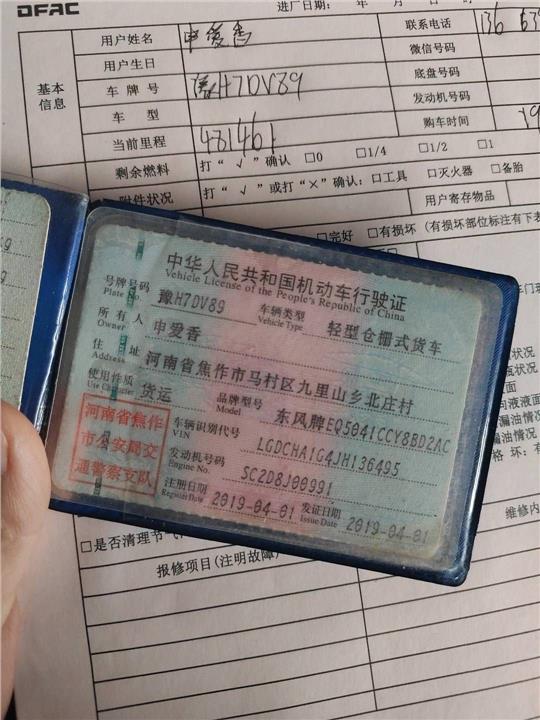 DFAC
进厂日期: 年 月 日
基本信息
用户姓名 申爱香 联系电话 136
用户生日 微信号码
车牌号 豫H7DV89 底盘号码
车型 发动机号码
当前里程 481461 购车时间 19
剩余燃料 打“√”确认 □0 □1/4 □1/2 □1
附件状况 打“√”或打“×”确认: □工具 □灭火器 □备胎
用户寄存物品
□完好 □有损坏 (有损坏部位标注有下表
中华人民共和国机动车行驶证
Vehicle License of the People's Republic of China
号牌号码 Plate No. 豫H7DV89 车辆类型 Vehicle Type 轻型仓栅式货车
所有人 Owner 申爱香
住址 Address 河南省焦作市马村区九里山乡北庄村
使用性质 Use Character 货运 品牌型号 Model 东风牌EQ5041CCY8BD2AC
河南省焦作
市公安局交
通警察支队
车辆识别代号 VIN LGDCHA1G4JH136495
发动机号码 Engine No. SC2D8J00991
注册日期 Register Date 2019-04-01 发证日期 Issue Date 2019-04-01
□是否清理节
维修内
报修项目(注明故障)